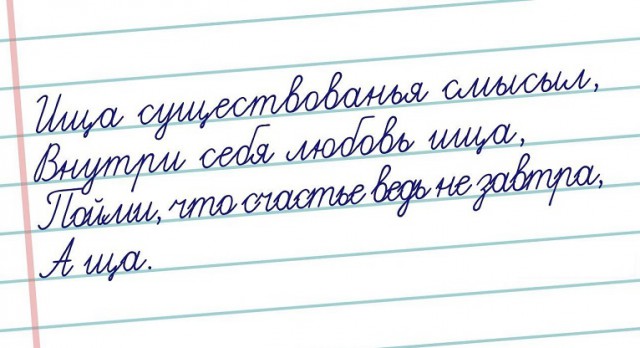 Ища существованья смысыл,
Внутри себя любовь ища,
Пойми, что счастье ведь не завтра,
А ща.